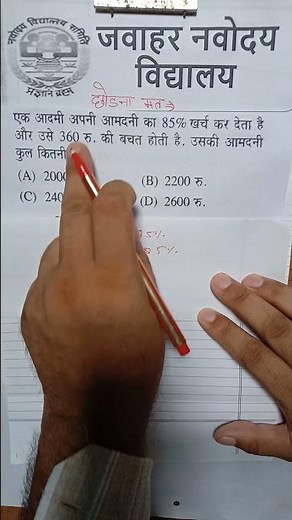 नवोदय विद्यालय समिति
प्रज्ञानं ब्रह्म
जवाहर नवोदय
विद्यालय
छोड़ना मत
एक आदमी अपनी आमदनी का 85% खर्च कर देता है
और उसे 360 रु. की बचत होती है. उसकी आमदनी
कुल कितनी
(A) 2000
(B) 2200 रु.
(C) 240
(D) 2600 रु.
5%